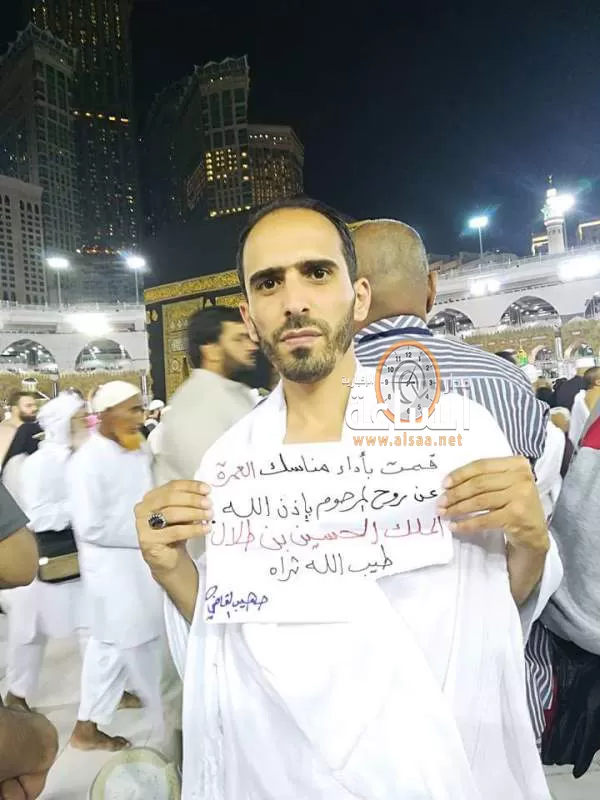 الساعة
www.alsaa.net
قمت بأداء مناسك العمرة
عن روح المرحوم بإذن الله
الملك الحسين بن طلال
طيب الله ثراه
صهيب القاضي